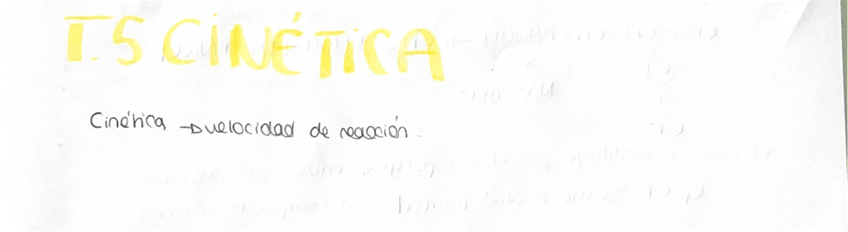 T.5 CINÉTICA
Cinética → velocidad de reacción.